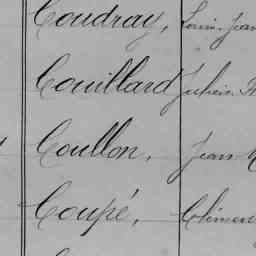 Coudray, Louis-Jean
Couillard Julien
Coullon, Jean
Coupé, Clémen